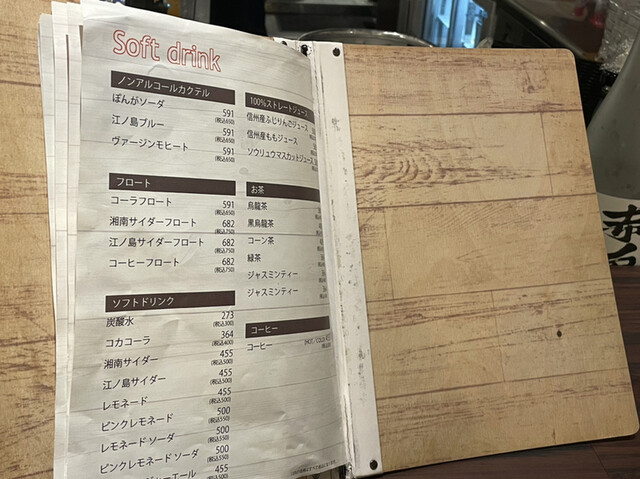 Soft drink
ノンアルコールカクテル
ぽんがソーダ 591
(税込650)
江ノ島ブルー 591
(税込650)
ヴァージンモヒート 591
(税込650)
フロート
コーラフロート 591
(税込650)
湘南サイダーフロート 682
(税込750)
江ノ島サイダーフロート 682
(税込750)
コーヒーフロート 682
(税込750)
ソフトドリンク
炭酸水 273
(税込300)
コカコーラ 364
(税込400)
湘南サイダー 455
(税込500)
江ノ島サイダー 455
(税込500)
レモネード 455
(税込500)
ピンクレモネード 500
(税込550)
レモネード ソーダ 500
(税込550)
ピンクレモネード ソーダ 500
(税込550)
ジャーエール 455
(税込500)
100%ストレートジュース
信州産ふじりんごジュース
信州産ももジュース
ソウリュウマスカットジュース
お茶
烏龍茶
黒烏龍茶
コーン茶
緑茶
ジャスミンティー
ジャスミンティー
コーヒー
コーヒー (HOT / COLD)
赤